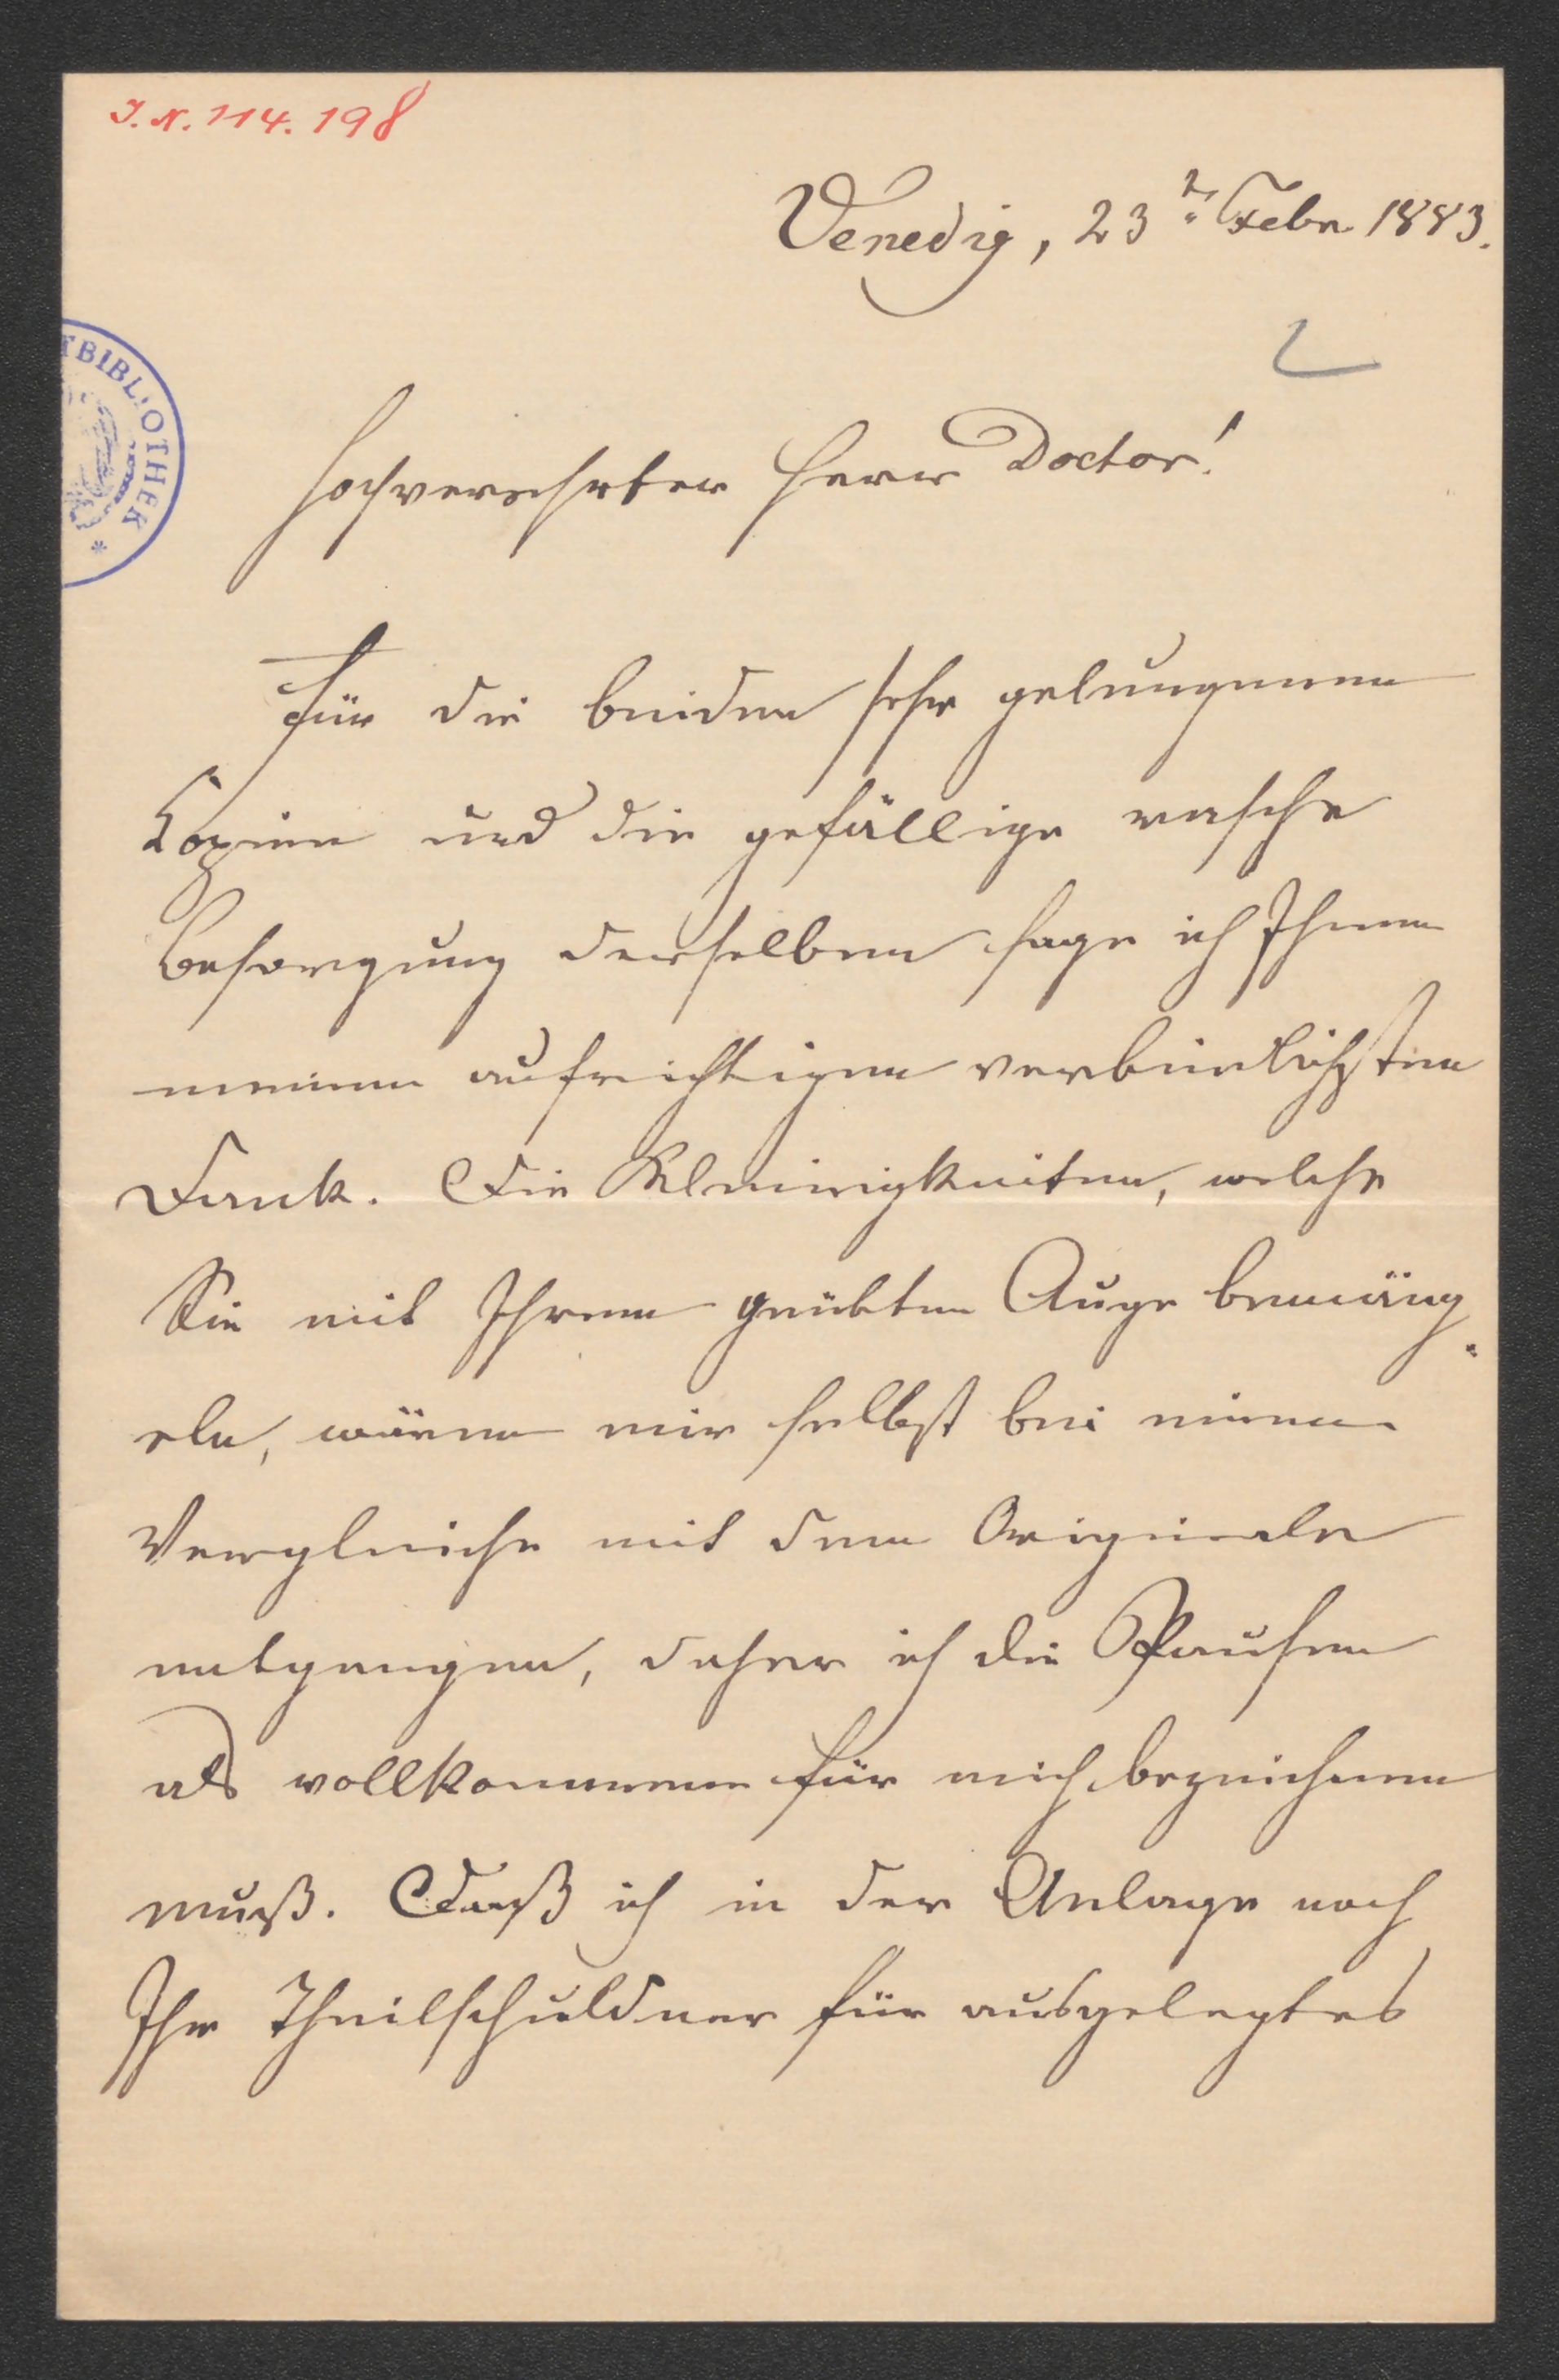 I.N. 114.198
Venedig, 23t. Febr. 1883.
2
TBIBLIOTHEK *
Hochverehrter Herr Doctor!
Für die beiden sehr gelungenen
Kopien und die gefällige rasche
Besorgung derselben sage ich Ihnen
meinen aufrichtigen verbindlichsten
Dank. Die Kleinigkeiten, welche
Sie mit Ihrem geübten Auge bemäng-
eln, wären mir selbst bei einem
Vergleiche mit dem Originale
entgangen, daher ich die Pausen
als vollkommen für mich bezeichnen
muß. Daß ich in der Anlage noch
Ihr Theilschuldner für ausgelegtes